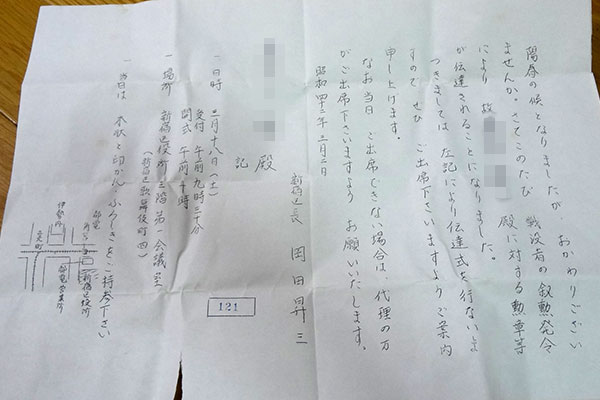 陽春の候となりましたが、おかわりござい
ませんか。さてこのたび 戦没者の叙勲発令
により 故 殿に対する勲章等
が伝達されることになりました。
つきましては 左記により伝達式を行ないま
すので ぜひ ご出席下さいますようご案内
申し上げます。
なお当日 ご出席できない場合は、代理の方
がご出席下さいますよう お願いいたします。
昭和四十二年三月二日
新宿区長 岡田昇三
殿
記
一 日時 三月十八日(土)
受付 午前九時三十分
開式 午前十時
一 場所 新宿区役所三階第一会議室
(新宿区歌舞伎町四)
一 当日は 本状と印かん、ふろしきをご持参下さい
伊勢丹
新宿区役所
121